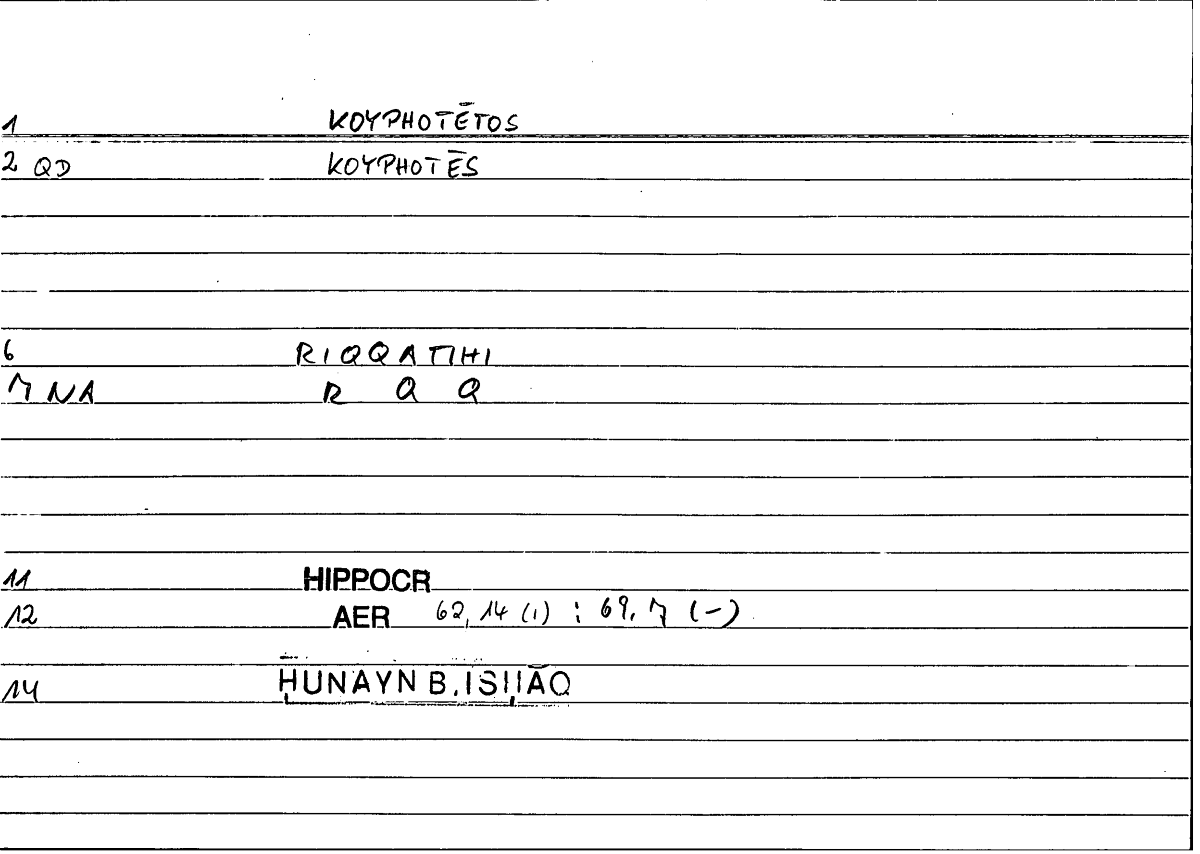 1 KOYPHOTĒTOS
2 QD KOYPHOTĒS
6 RIQQATIHI
7 NA R Q Q
11 HIPPOCR
12 AER 62,14 (1) ; 69,7 (-)
14 ḤUNAYN B.ISḤĀQ